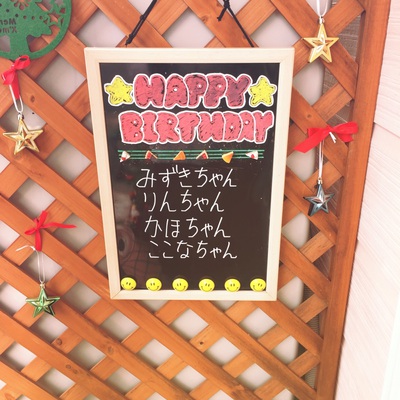 HAPPY
BIRTHDAY
みずきちゃん
りんちゃん
かほちゃん
ここなちゃん